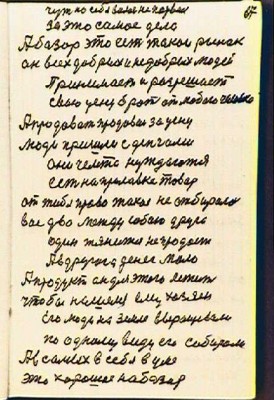 67
За это самое дело
А базар это есть такой рынок
он всех добрых и недобрых людей
Принимает и разрешает
свою цену в рот от любого человека
А продават продавал за цену
люди пришли с деньгами
они чемто нуждаются
есть на прилавке товар
от тебя право такое не отбирало
вас два между собою друга
один тянется не продает
А в другога денег мало
А продукт он для этого лежит
чтобы нашелся ему хозяин
Его люди на земле выращивали
по одному виду его собирали
А в самых в себя в уме
это хорошое на базар